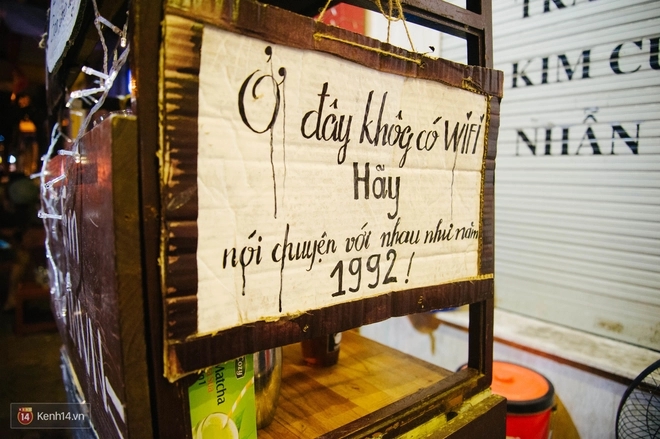 Ở đây khôg có WiFi
Hãy
nói chuyện với nhau như năm
1992!
KIM CƯ
NHẪN
Cozy
Matcha
14 Kenh14.vn